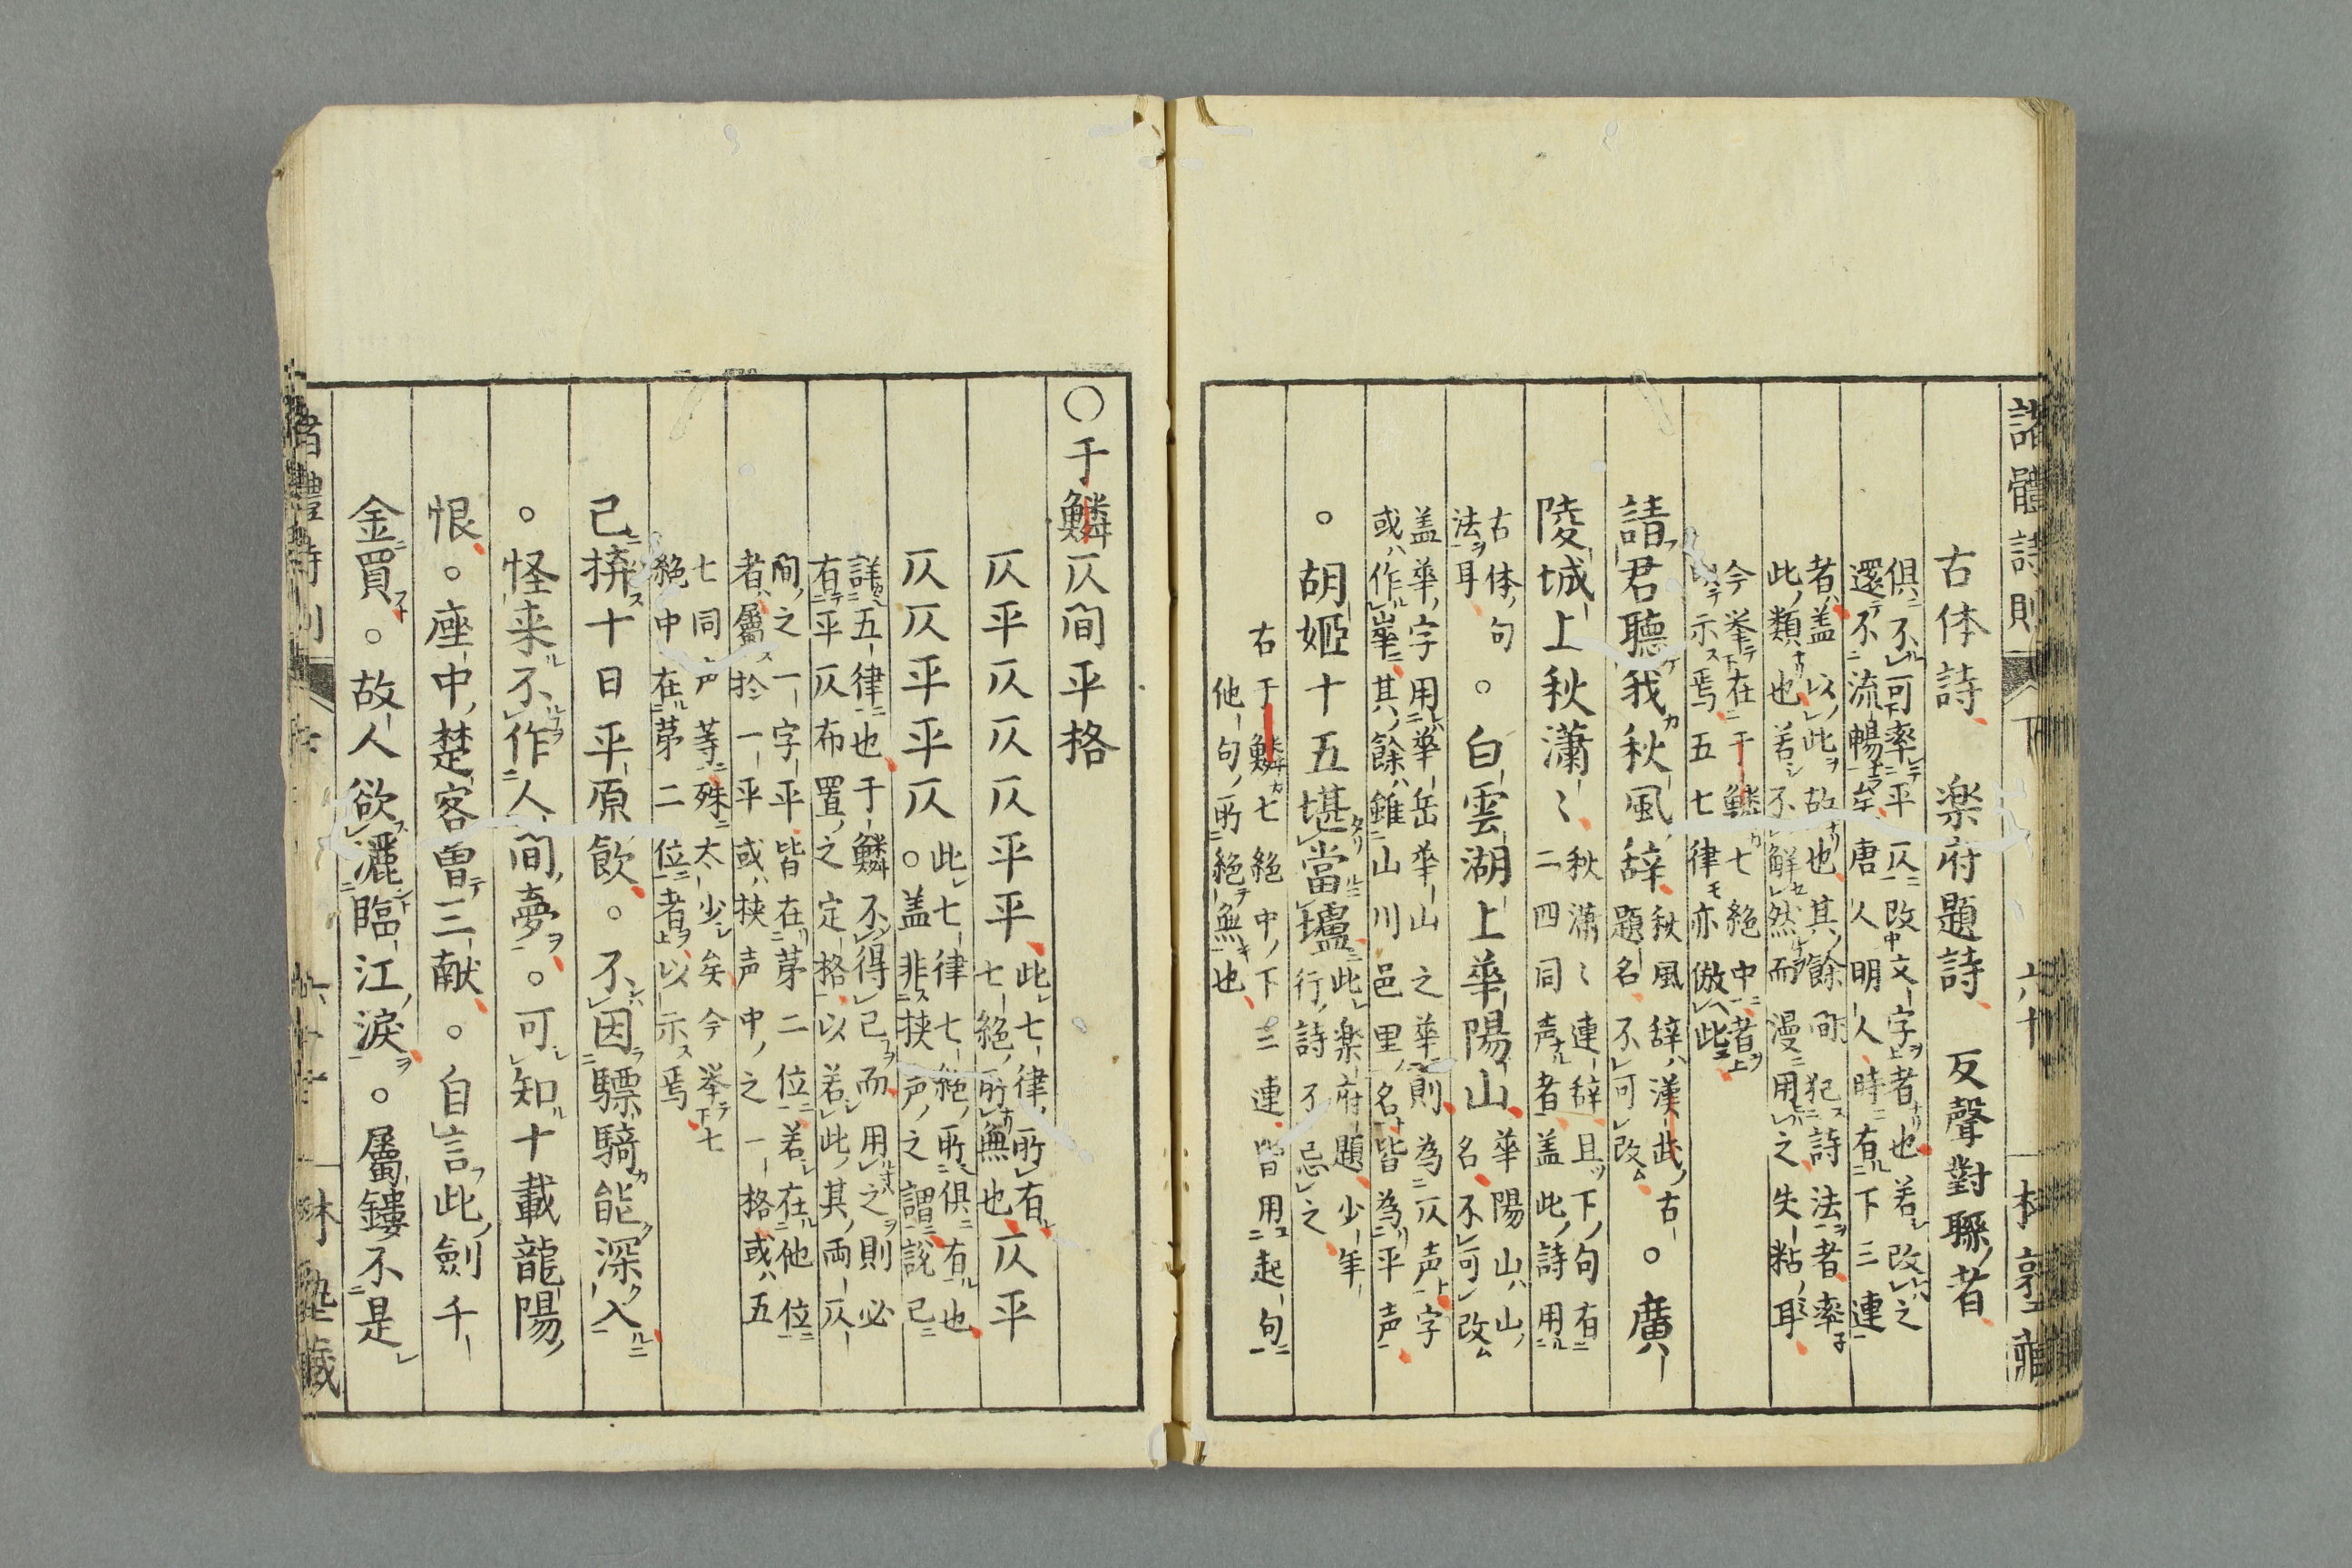 諸體詩則 下 六十
古体詩 楽府題詩 反聲對聯者
俱不可率平仄改文字者也若改之
還不流暢矣唐人明人時有下三連
者蓋以此故也其餘間犯詩法者率
此類也若不鮮然而漫用之失粘耳
今举在于鱗七絶中者
示焉五七律亦倣此
請君聽我秋風辞
秋風辞漢武古
題名不可改
。廣
陵城上秋瀟〻
秋瀟〻連辞且下句有
二四同声者盖此詩用
古体句
法耳
。白雲湖上華陽山
華陽山山
名不可改
盖華字用華岳華山之華則為仄声字
或作崋其餘雖山川邑里名皆為平声
。胡姬十五堪當壚
此楽府題少年
行詩不忌之
右于鱗七絶中下三連皆用起句
他句所絶無也
〇于鱗仄間平格
仄平仄仄仄平平
此七律所有
七絶所無也
仄平
仄仄平平仄
此七律七絶所俱有也
。盖非挟声之謂說已
詳五律也于鱗不得已而用之則必
有平仄布置之定格以若此其両仄
間之一字平皆在苐二位若在他位
者屬於一平或挟声中之一格或五
七同声等殊太少矣今举七
絶中在苐二位者以示焉
已拚十日平原飲。不因驃騎能深入
。怪来不作人間夢。可知十載龍陽
恨。座中楚客曽三献。自言此劍千
金買。故人欲灑臨江淚。屬鏤不是